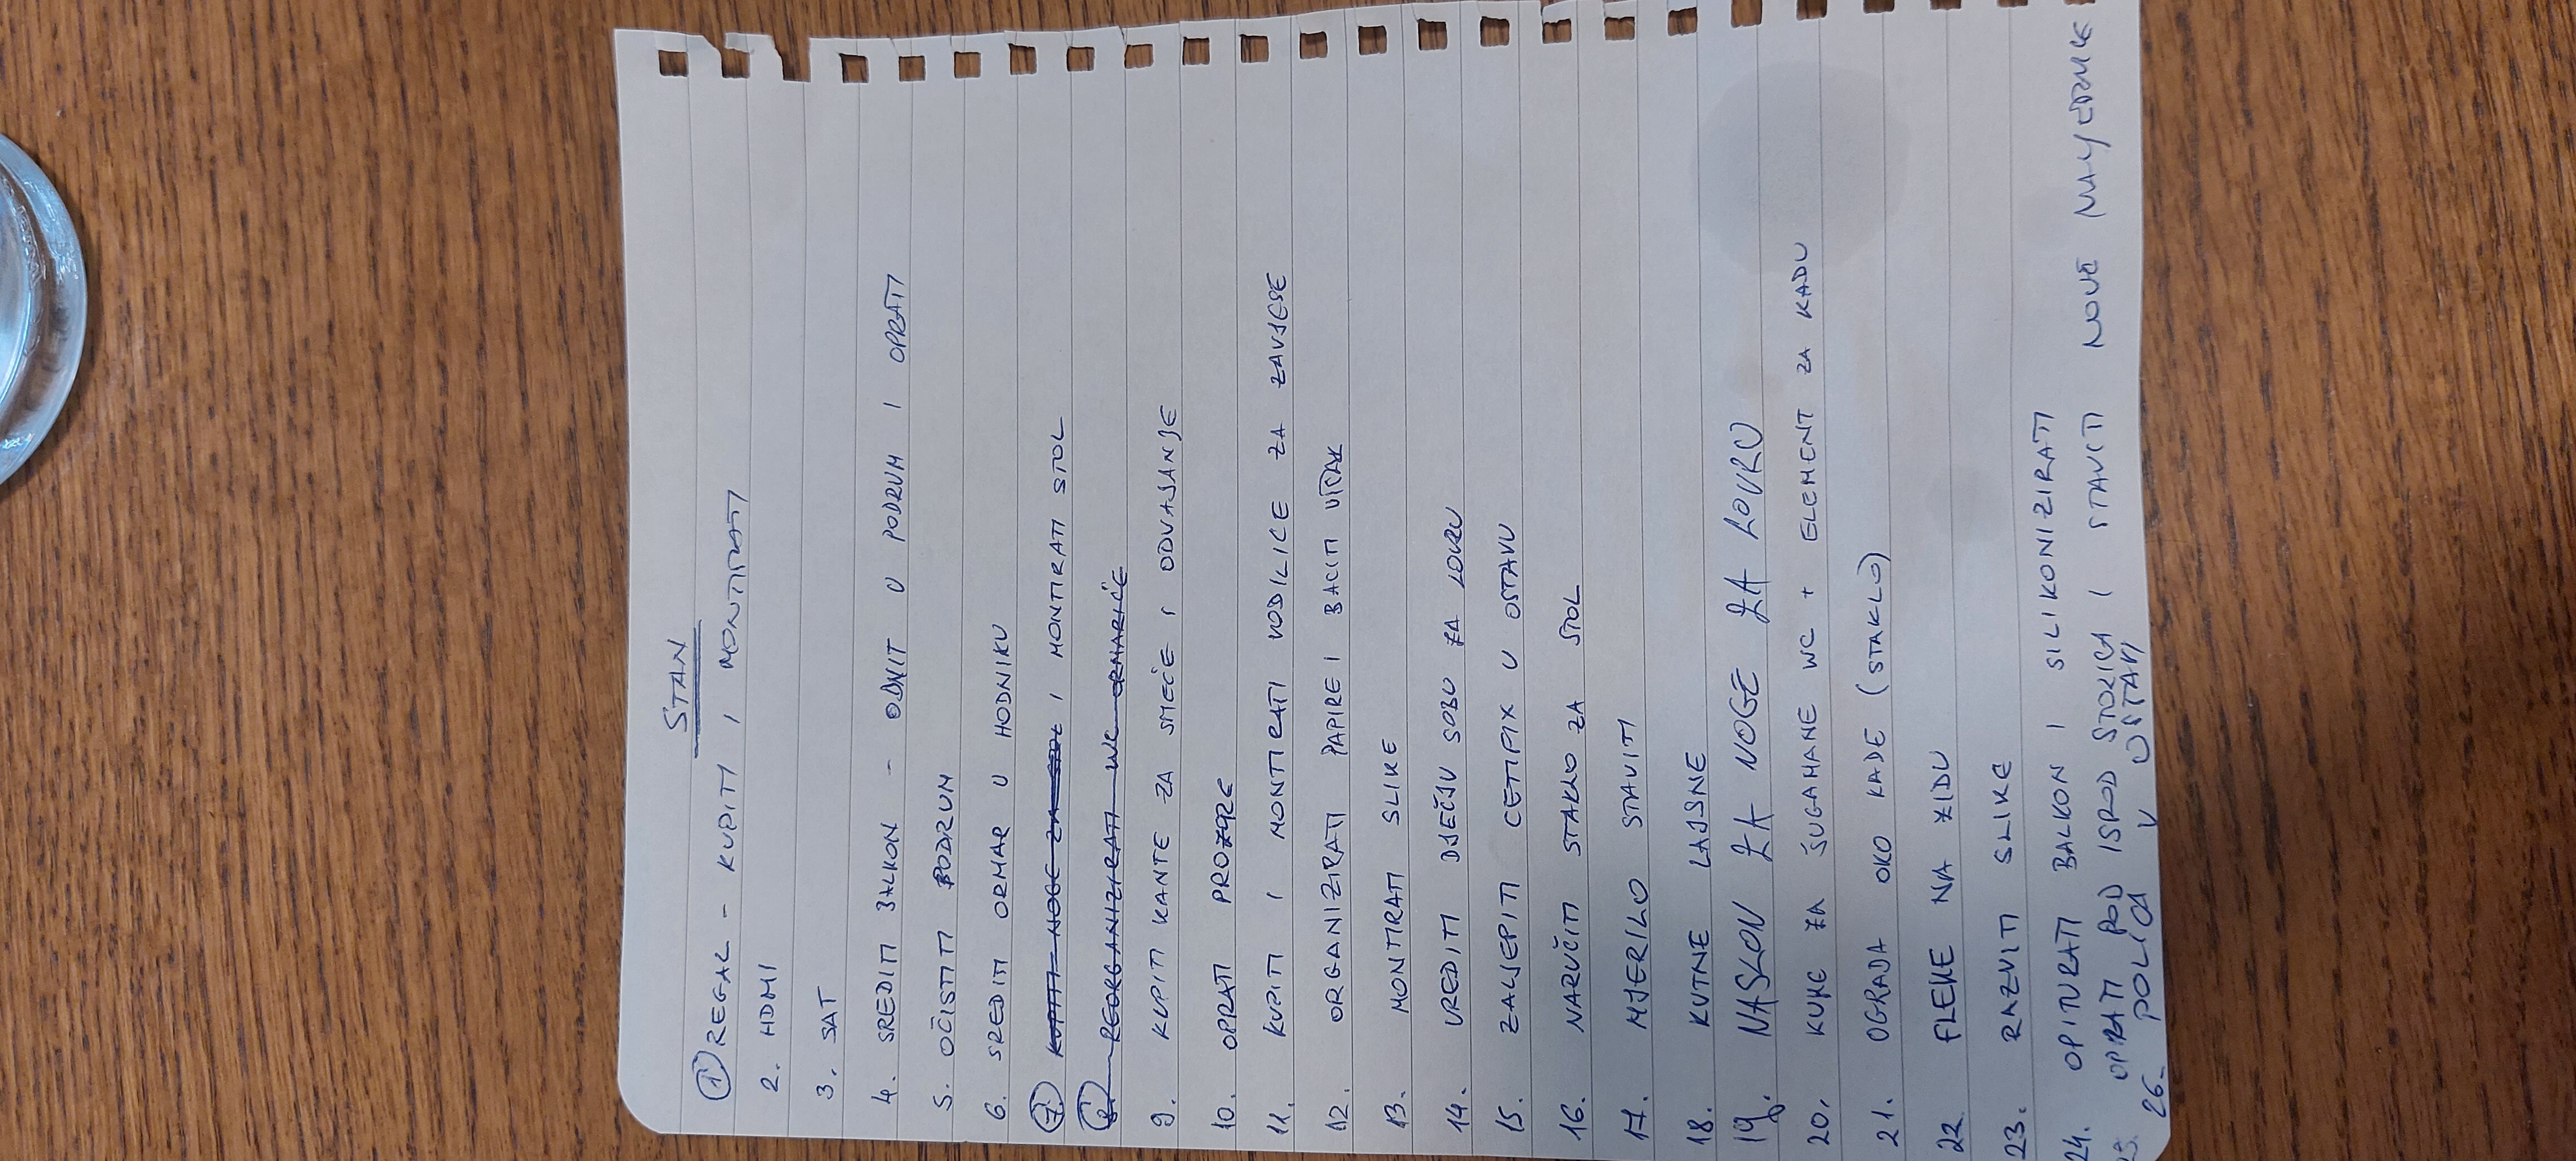 STAN
1. REGAL - KUPITI I MONTIRATI
2. HDMI
3. SAT
4. SREDITI BALKON - ODNIT U PODRUM I OPRATI
5. OČISTITI PODRUM
6. SREDITI ORMAR U HODNIKU
7. KUPITI NOGE ZA STOL I MONTIRATI STOL
8. REORGANIZIRATI WC ORMARIĆE
9. KUPITI KANTE ZA SMEĆE I ODVAJANJE
10. OPRATI PROZORE
11. KUPITI I MONTIRATI VODILICE ZA ZAVJESE
12. ORGANIZIRATI PAPIRE I BACITI VIŠAK
13. MONTIRATI SLIKE
14. UREDITI DJEČJU SOBU ZA LOVRU
15. ZALJEPITI CETIFIX U OSTAVU
16. NARUČITI STAKLO ZA STOL
17. MJERILO STAVITI
18. KUTNE LAJSNE
19. NASLON ZA NOGE ZA LOVRU
20. KUKE ZA ŠUGAMANE WC + ELEMENT ZA KADU
21. OGRADA OKO KADE (STAKLO)
22 FLEKE NA ZIDU
23. RAZVITI SLIKE
24. OPITURATI BALKON I SILIKONIZIRATI
OPRATI POD ISPOD STOLICA I STAVITI NOVE
26. POLICA U OSTAVI